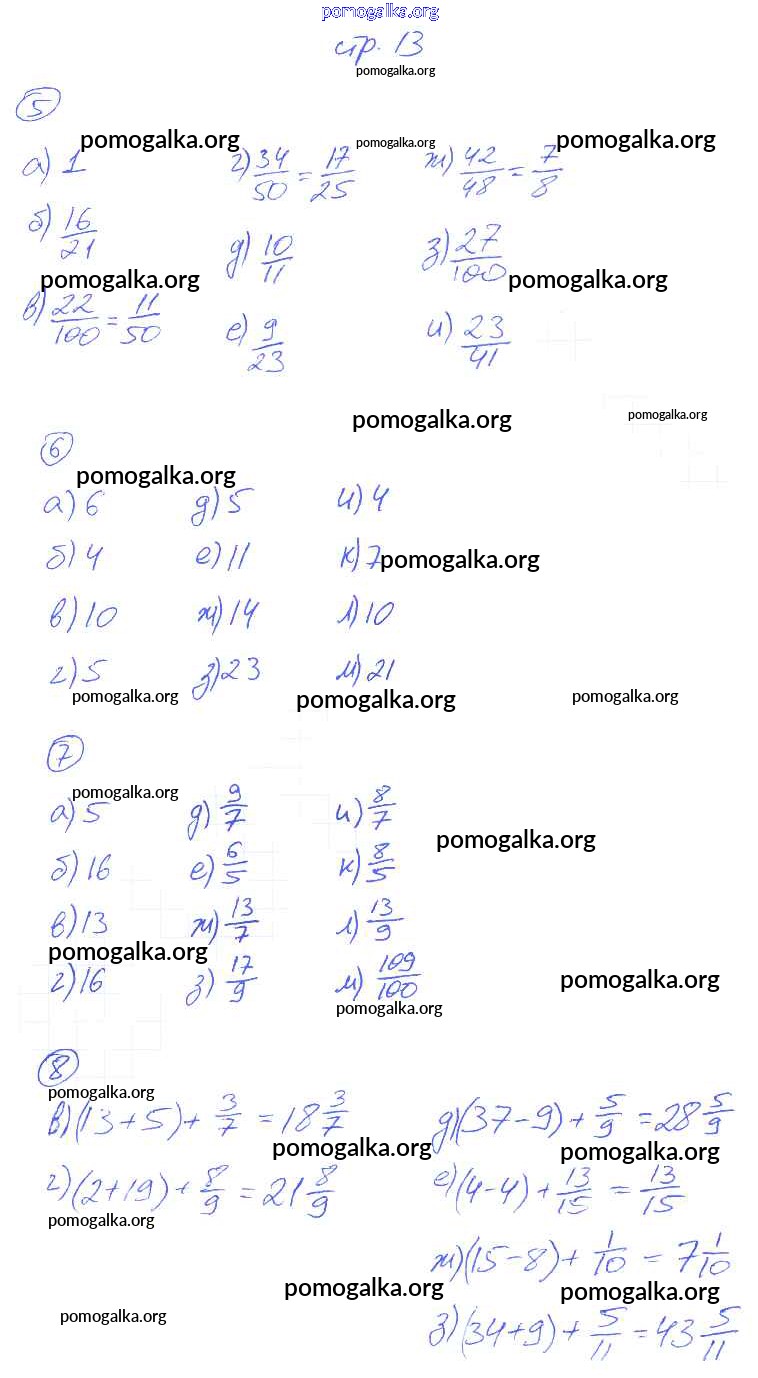 pomogalka.org
стр. 13
pomogalka.org
5
pomogalka.org pomogalka.org pomogalka.org
а) 1 г) 34/50 = 17/25 ж) 42/48 = 7/8
б) 16/21 д) 10/11 з) 27/100
pomogalka.org pomogalka.org
в) 22/100 = 11/50 е) 9/23 и) 23/41
pomogalka.org pomogalka.org
6
pomogalka.org
а) 6 д) 5 и) 4
б) 4 е) 11 к) 7 pomogalka.org
в) 10 ж) 14 л) 10
г) 5 з) 23 м) 21
pomogalka.org pomogalka.org pomogalka.org
7
pomogalka.org
а) 5 д) 9/7 и) 8/7
pomogalka.org
б) 16 е) 6/5 к) 8/5
в) 13 ж) 13/7 л) 13/9
pomogalka.org
г) 16 з) 17/9 м) 109/100
pomogalka.org
pomogalka.org
8
pomogalka.org
в) (13+5) + 3/7 = 18 3/7 д) (37-9) + 5/9 = 28 5/9
pomogalka.org pomogalka.org
г) (2+19) + 8/9 = 21 8/9 е) (4-4) + 13/15 = 13/15
pomogalka.org
ж) (15-8) + 1/10 = 7 1/10
pomogalka.org pomogalka.org
pomogalka.org
з) (34+9) + 5/11 = 43 5/11